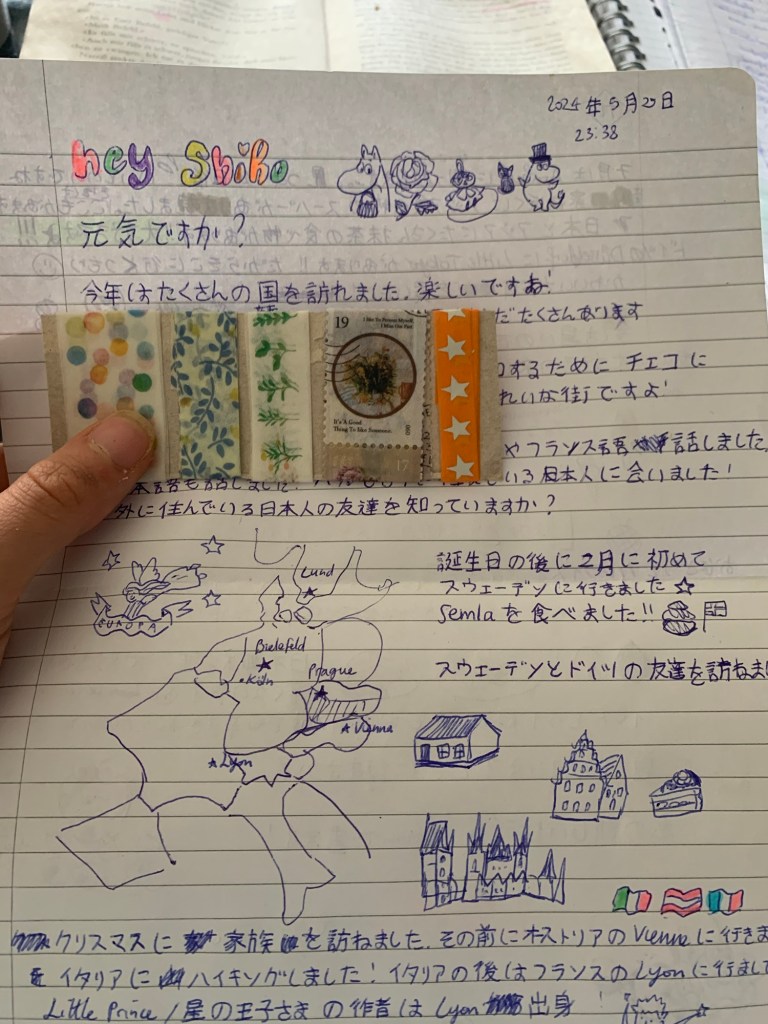 2024年5月29日
23:38
hey Shiho
元気ですか?
今年はたくさんの国を訪れました。楽しいですね!
だたくさんあります
するために チェコに
れいな街ですよ
19
I like to Possess Myself
I Miss Our Past
It's A Good
Thing To like Someone.
17
やフランス語 話しました。
いる日本人に会いました!
外に住んでいる日本人の友達を知っていますか?
誕生日の後に2月に初めて
スウェーデンに行きました
Semlaを食べました!!
EUROPA
Lund
Bielefeld
Köln
Prague
Vienna
Lyon
スウェーデンとドイツの友達を訪ねま
クリスマスに 家族を訪ねました。その前にオストリアのViennaに行きま
イタリアに ハイキングしました! イタリアの後はフランスのLyonに行きまし
Little Prince/星の王子さまの作者はLyon 出身